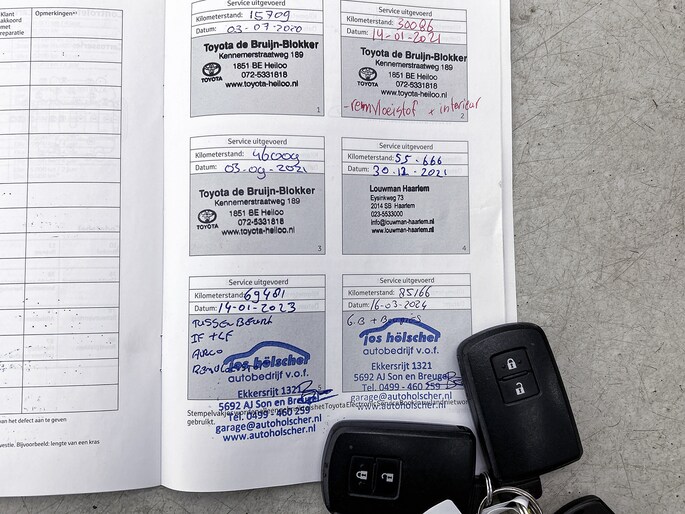 Klant
akkoord
met
reparatie
Opmerkingen*)
Service uitgevoerd
Kilometerstand: 15709
Datum: 03-07-2020
Toyota de Bruijn-Blokker
Kennemerstraatweg 189
1851 BE Heiloo
072-5331818
www.toyota-heiloo.nl
TOYOTA
1
Service uitgevoerd
Kilometerstand: 30086
Datum: 14-01-2021
Toyota de Bruijn-Blokker
Kennemerstraatweg 189
1851 BE Heiloo
072-5331818
www.toyota-heiloo.nl
TOYOTA
-remvloeistof + interieur
2
Service uitgevoerd
Kilometerstand: 46009
Datum: 03-09-2021
Toyota de Bruijn-Blokker
Kennemerstraatweg 189
1851 BE Heiloo
072-5331818
www.toyota-heiloo.nl
TOYOTA
3
Service uitgevoerd
Kilometerstand: 55.666
Datum: 30-12-2021
Louwman Haarlem
Eysinkweg 73
2014 SB Haarlem
023-5533000
info@louwman-haarlem.nl
www.louwman-haarlem.nl
4
Service uitgevoerd
Kilometerstand: 69481
Datum: 14-01-2023
TUSSENBEURT
IF + LF
AIRCO
jos hölscher
autobedrijf v.o.f.
Ekkersrijt 1321
5692 AJ Son en Breugel
Tel. 0499 - 460 259
garage@autoholscher.nl
www.autoholscher.nl
5
Service uitgevoerd
Kilometerstand: 85166
Datum: 16-03-2024
G.B +
jos hölscher
autobedrijf v.o.f.
Ekkersrijt 1321
5692 AJ Son en Breugel
Tel. 0499 - 460 259
garage@autoholscher.nl
www.autoholscher.nl
Stempelvakjes
gebruikt.
van het defect aan te geven
vestie. Bijvoorbeeld: lengte van een kras